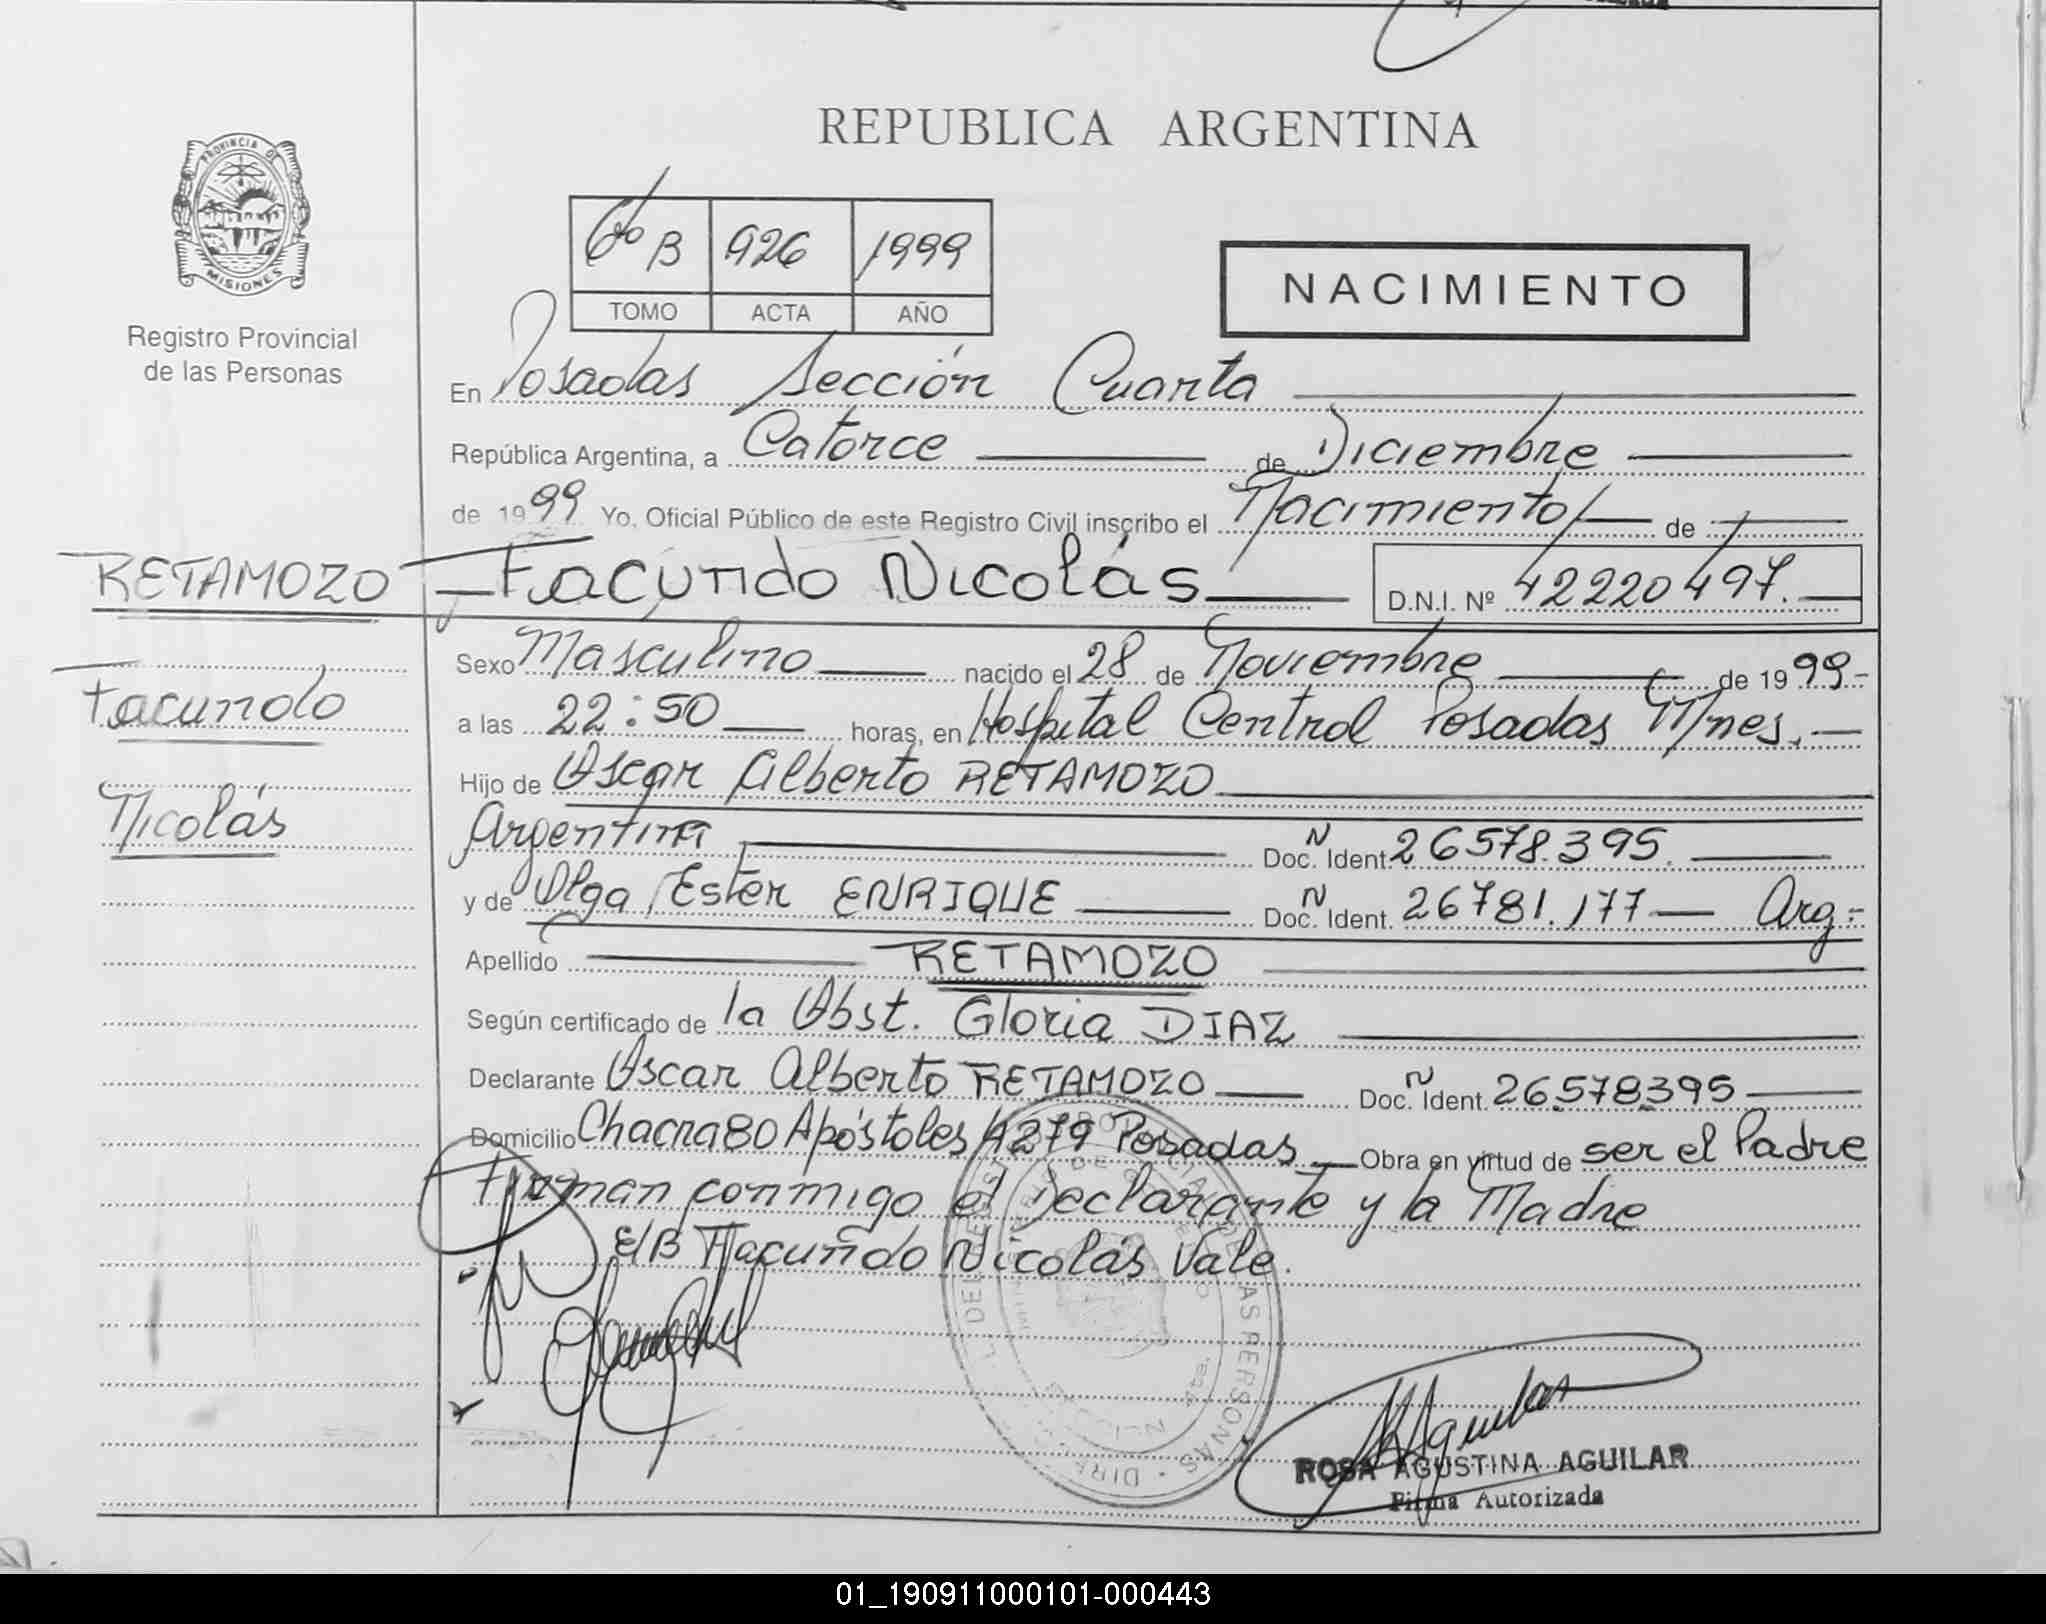 REPUBLICA ARGENTINA
PROVINCIA DE
MISIONES
Registro Provincial
de las Personas
6to B 926 1999
TOMO ACTA AÑO
NACIMIENTO
En Posadas Sección Cuarta
República Argentina, a Catorce de Diciembre
de 1999 Yo, Oficial Público de este Registro Civil inscribo el Nacimiento de
RETAMOZO Facundo Nicolás D.N.I. Nº 42220497.
Sexo Masculino nacido el 28 de Noviembre de 1999.-
Facundo
a las 22:50 horas, en Hospital Central Posadas Mnes.
Hijo de Oscar Alberto RETAMOZO
Nicolás
Argentina Doc. N Ident 26578.395.
y de Olga Ester ENRIQUE Doc. N Ident. 26781.177 Arg.-
Apellido RETAMOZO
Según certificado de la Obst. Gloria DIAZ
Declarante Oscar Alberto RETAMOZO Doc. N Ident. 26.578.395
Domicilio Chacra 80 Apóstoles 4279 Posadas Obra en virtud de ser el Padre
Firman conmigo el Declarante y la Madre
E/B Facundo Nicolás Vale.
ROSA AGUSTINA AGUILAR
Firma Autorizada
01_190911000101-000443